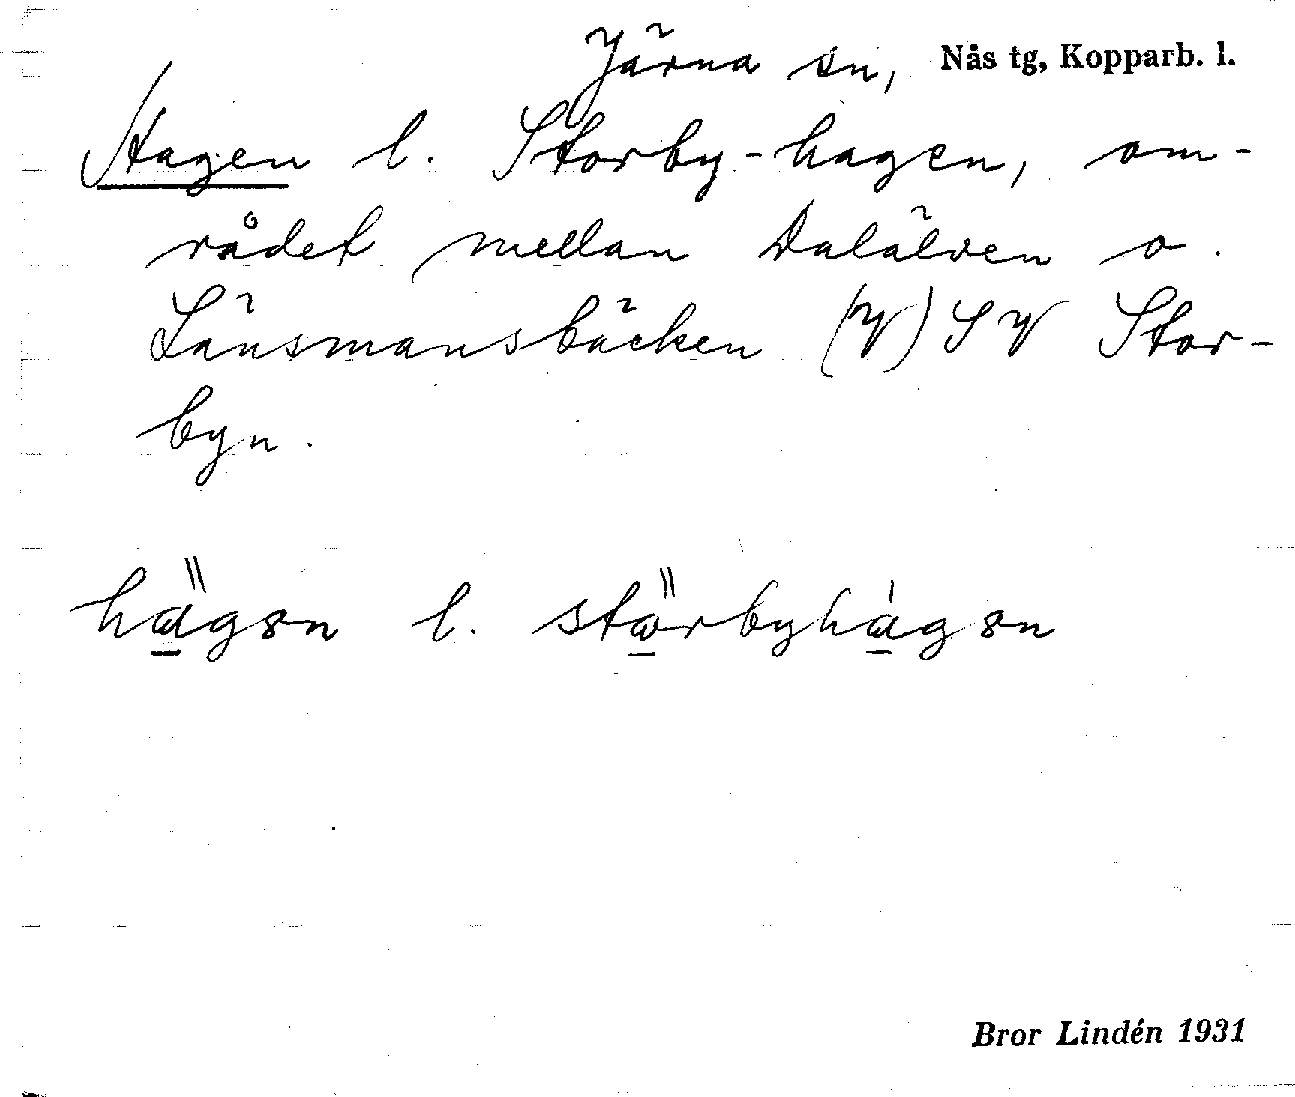 Järna sn, Nås tg, Kopparb. l.
Hagen l. Storby-hagen, om-
rådet mellan Dalälven o.
Länsmansbäcken (V) SV Stor-
byn.
l.
Bror Lindén 1931